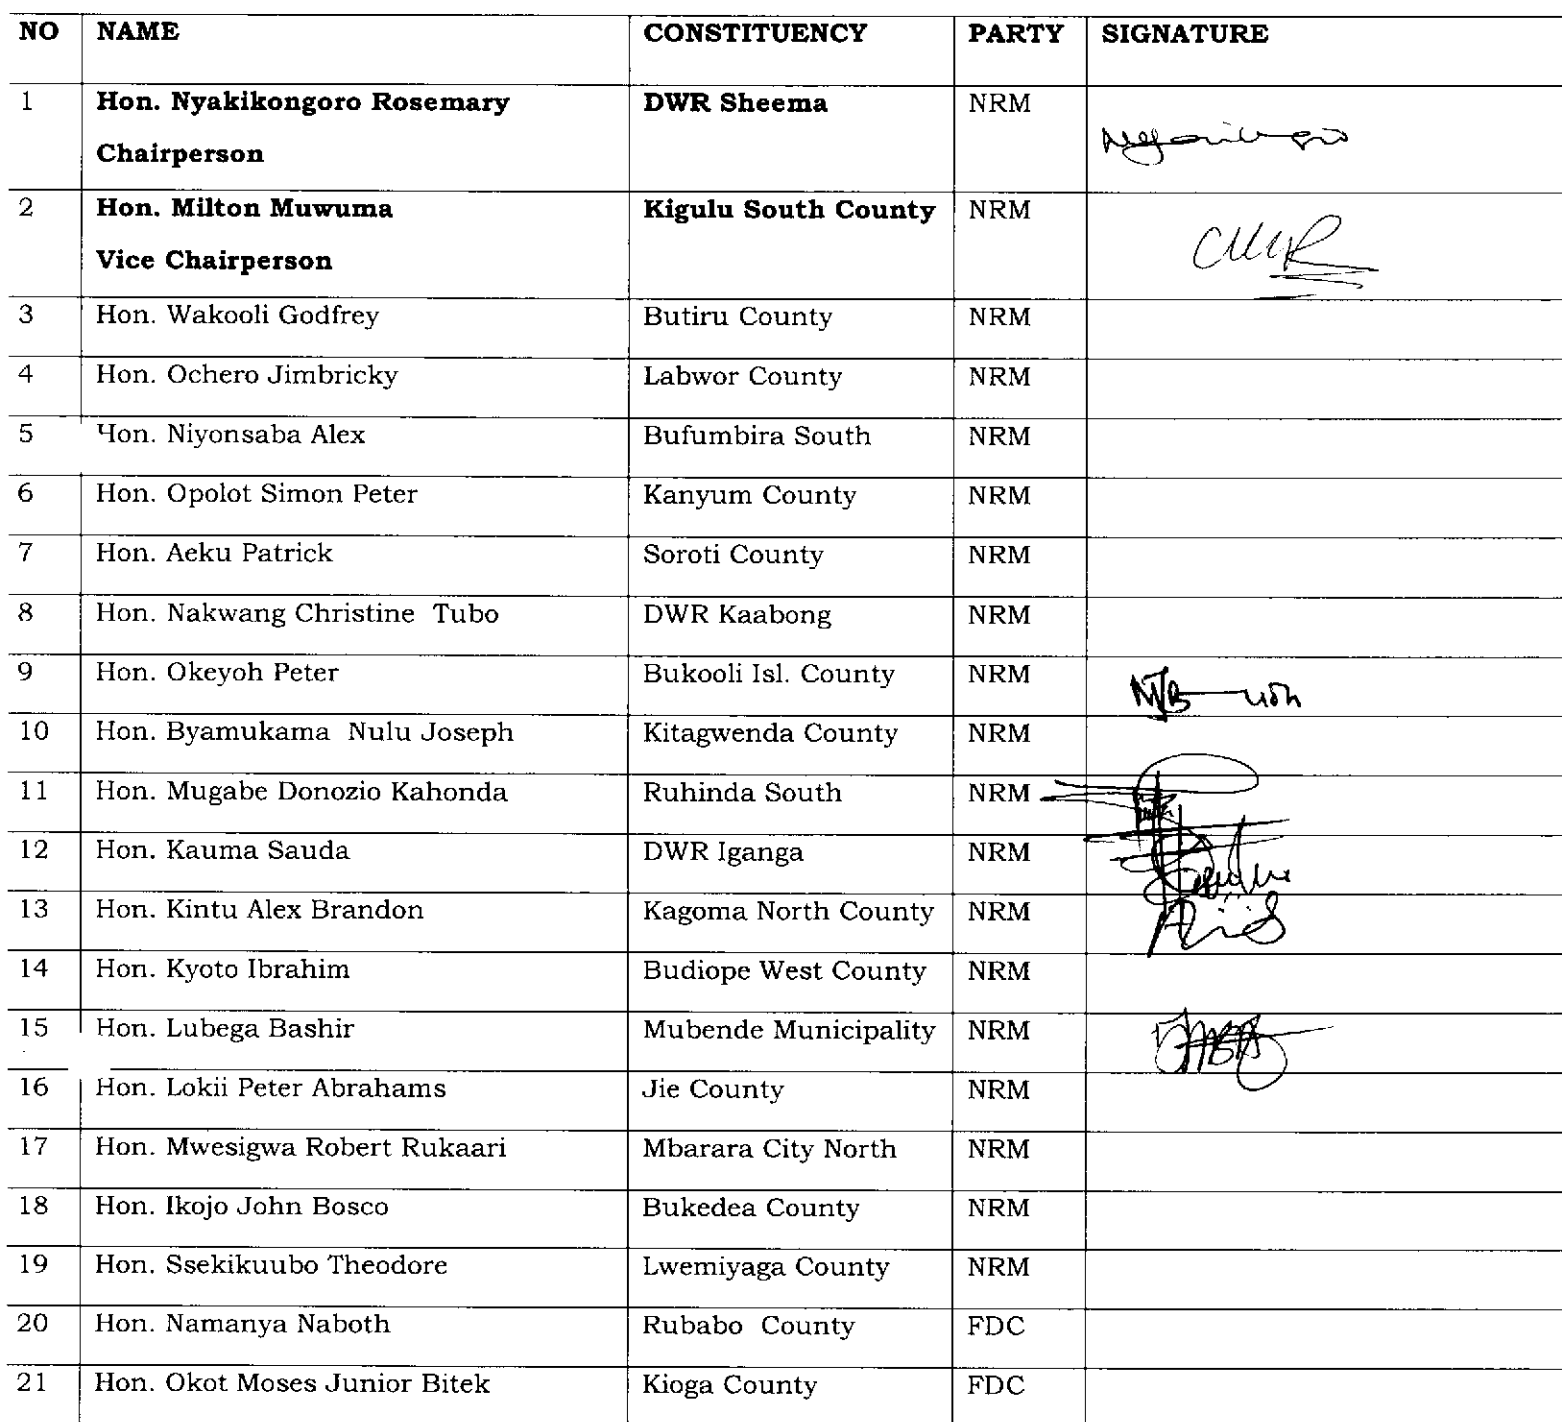 NO NAME CONSTITUENCY PARTY SIGNATURE
1 Hon. Nyakikongoro Rosemary DWR Sheema NRM
Chairperson
2 Hon. Milton Muwuma Kigulu South County NRM
Vice Chairperson
3 Hon. Wakooli Godfrey Butiru County NRM
4 Hon. Ochero Jimbricky Labwor County NRM
5 Hon. Niyonsaba Alex Bufumbira South NRM
6 Hon. Opolot Simon Peter Kanyum County NRM
7 Hon. Aeku Patrick Soroti County NRM
8 Hon. Nakwang Christine Tubo DWR Kaabong NRM
9 Hon. Okeyoh Peter Bukooli Isl. County NRM
10 Hon. Byamukama Nulu Joseph Kitagwenda County NRM
11 Hon. Mugabe Donozio Kahonda Ruhinda South NRM
12 Hon. Kauma Sauda DWR Iganga NRM
13 Hon. Kintu Alex Brandon Kagoma North County NRM
14 Hon. Kyoto Ibrahim Budiope West County NRM
15 Hon. Lubega Bashir Mubende Municipality NRM
16 Hon. Lokii Peter Abrahams Jie County NRM
17 Hon. Mwesigwa Robert Rukaari Mbarara City North NRM
18 Hon. Ikojo John Bosco Bukedea County NRM
19 Hon. Ssekikuubo Theodore Lwemiyaga County NRM
20 Hon. Namanya Naboth Rubabo County FDC
21 Hon. Okot Moses Junior Bitek Kioga County FDC